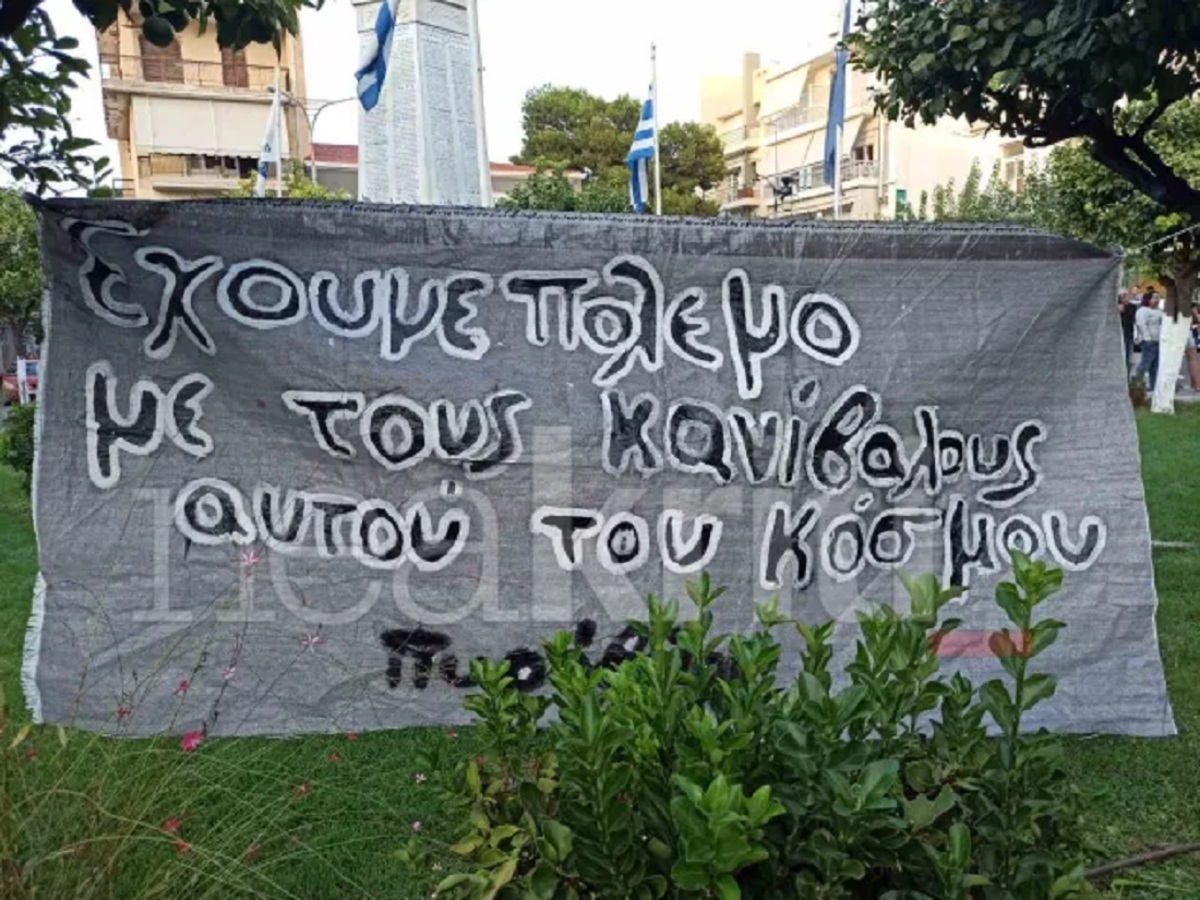 Έχουμε πόλεμο
με τους κανίβαλους
αυτού του κόσμου
neakriti